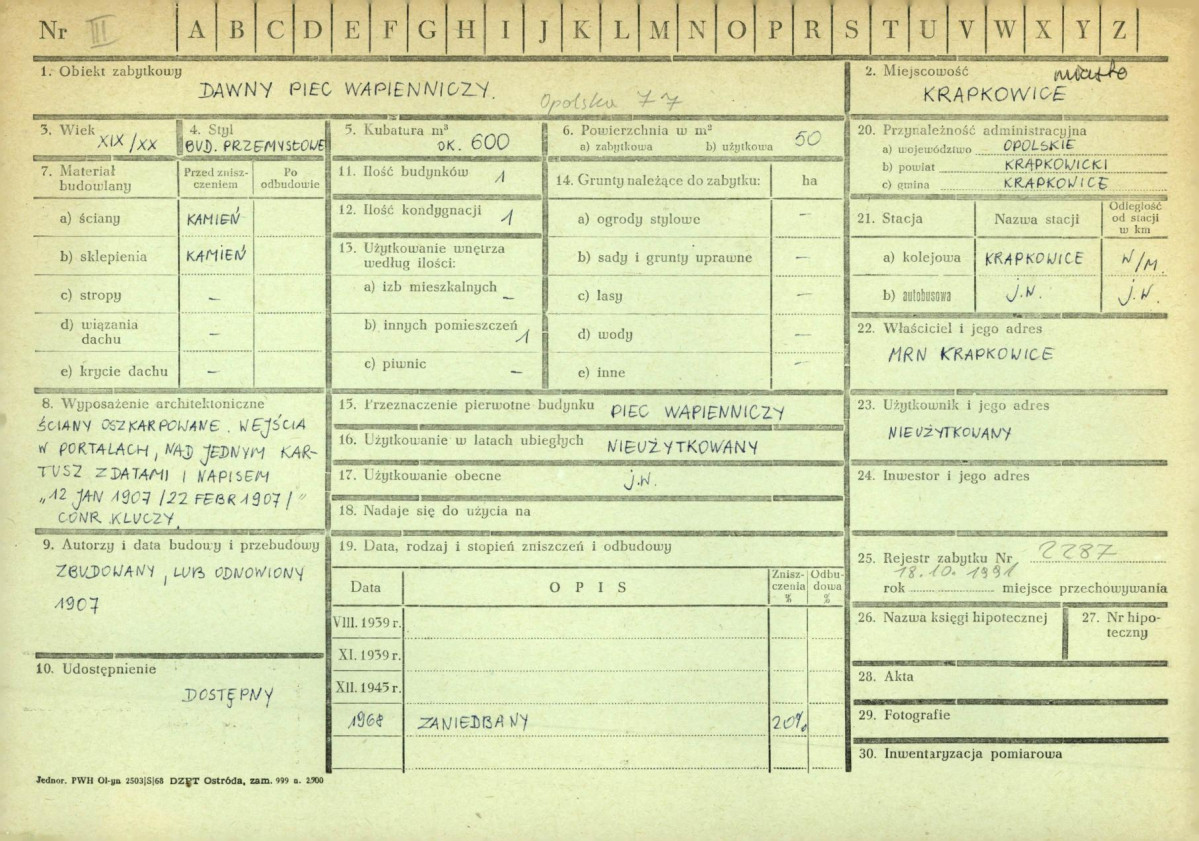 Nr III A B C D E F G H I J K L M N O P R S T U V W X Y Z
1. Obiekt zabytkowy
DAWNY PIEC WAPIENNICZY.
Opolska 77
2. Miejscowość miasto
KRAPKOWICE
3. Wiek
XIX/XX
4. Styl
BUD. PRZEMYSŁOWE
5. Kubatura m³
OK. 600
6. Powierzchnia w m²
a) zabytkowa b) użytkowa 50
7. Materiał budowlany
Przed zniszczeniem
Po odbudowie
a) ściany KAMIEŃ
b) sklepienia KAMIEŃ
c) stropy –
d) wiązania dachu –
e) krycie dachu –
8. Wyposażenie architektoniczne
ŚCIANY OSZKARPOWANE. WEJŚCIA
W PORTALACH, NAD JEDNYM KAR-
TUSZ Z DATAMI I NAPISEM
„12 JAN 1907/22 FEBR 1907/"
CONR. KLUCZY.
9. Autorzy i data budowy i przebudowy
ZBUDOWANY, LUB ODNOWIONY
1907
10. Udostępnienie
DOSTĘPNY
11. Ilość budynków 1
12. Ilość kondygnacji 1
13. Użytkowanie wnętrza
według ilości:
a) izb mieszkalnych –
b) innych pomieszczeń 1
c) piwnic –
14. Grunty należące do zabytku: ha
a) ogrody stylowe –
b) sady i grunty uprawne –
c) lasy –
d) wody –
e) inne –
15. Przeznaczenie pierwotne budynku PIEC WAPIENNICZY
16. Użytkowanie w latach ubiegłych NIEUŻYTKOWANY
17. Użytkowanie obecne j.w.
18. Nadaje się do użycia na
19. Data, rodzaj i stopień zniszczeń i odbudowy
Data OPIS Znisz-
czenia
%
Odbu-
dowa
%
VIII. 1939 r.
XI. 1939 r.
XII. 1945 r.
1968 ZANIEDBANY 20%
20. Przynależność administracyjna
a) województwo OPOLSKIE
b) powiat KRAPKOWICKI
c) gmina KRAPKOWICE
21. Stacja Nazwa stacji Odległość
od stacji
w km
a) kolejowa KRAPKOWICE W/M.
b) autobusowa j.w. j.w.
22. Właściciel i jego adres
MRN KRAPKOWICE
23. Użytkownik i jego adres
NIEUŻYTKOWANY
24. Inwestor i jego adres
25. Rejestr zabytku Nr 2287
18.10.1991
rok miejsce przechowywania
26. Nazwa księgi hipotecznej
27. Nr hipo-
teczny
28. Akta
29. Fotografie
30. Inwentaryzacja pomiarowa
Jednor. PWH Ol-yn 2503|S|68 DZPT Ostróda, zam. 999 n. 2500